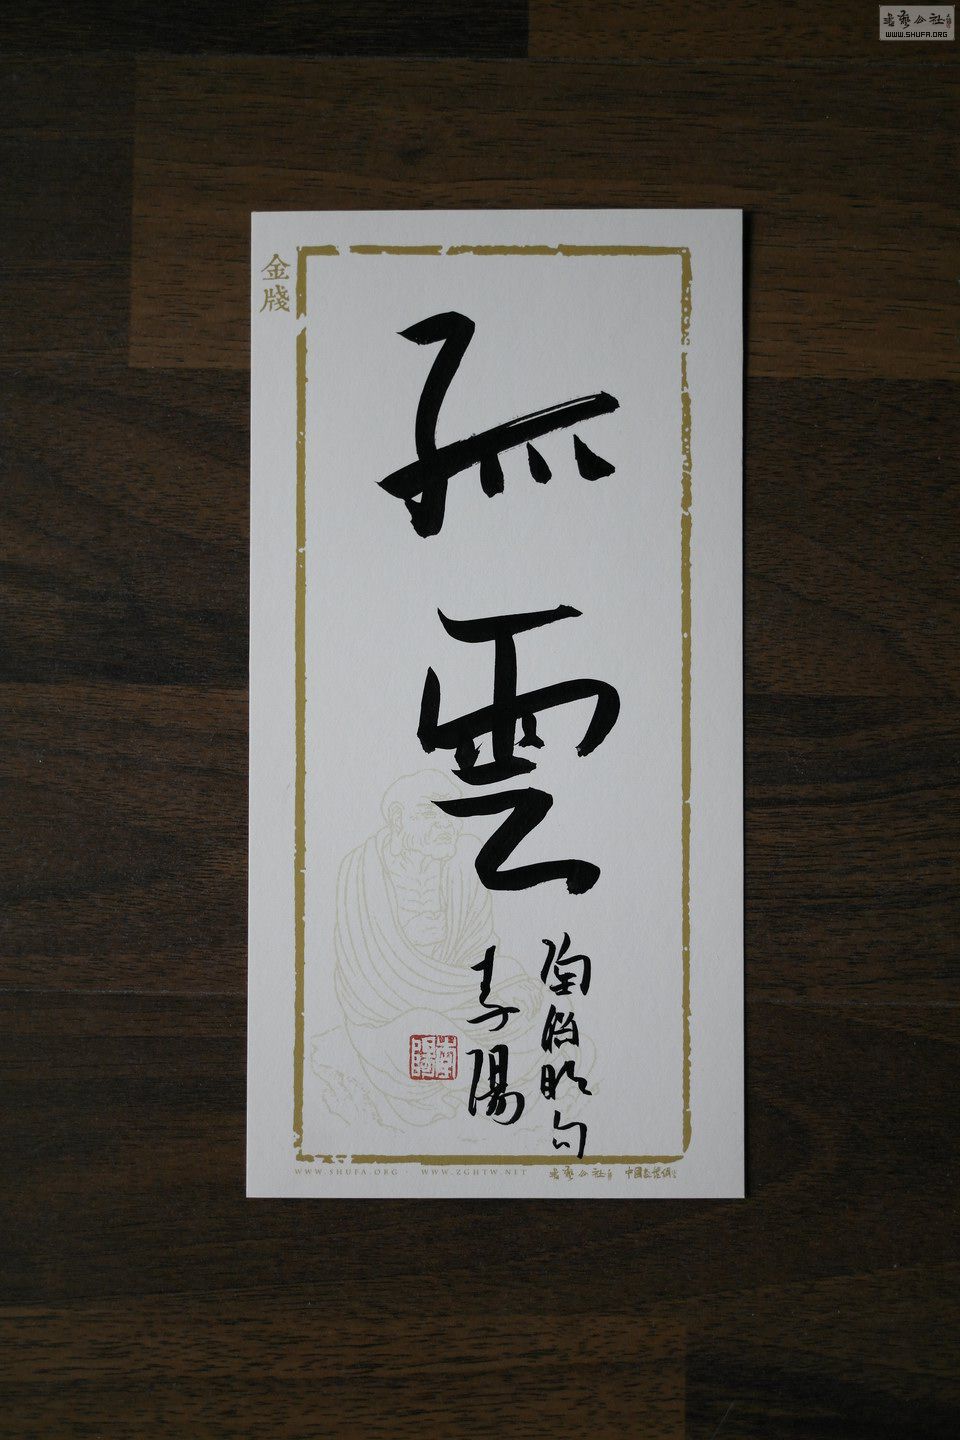 書藝公社
WWW.SHUFA.ORG
金牋
孤雲
陶淵明句
李陽
WWW.SHUFA.ORG WWW.ZGHTW.NET
書藝公社